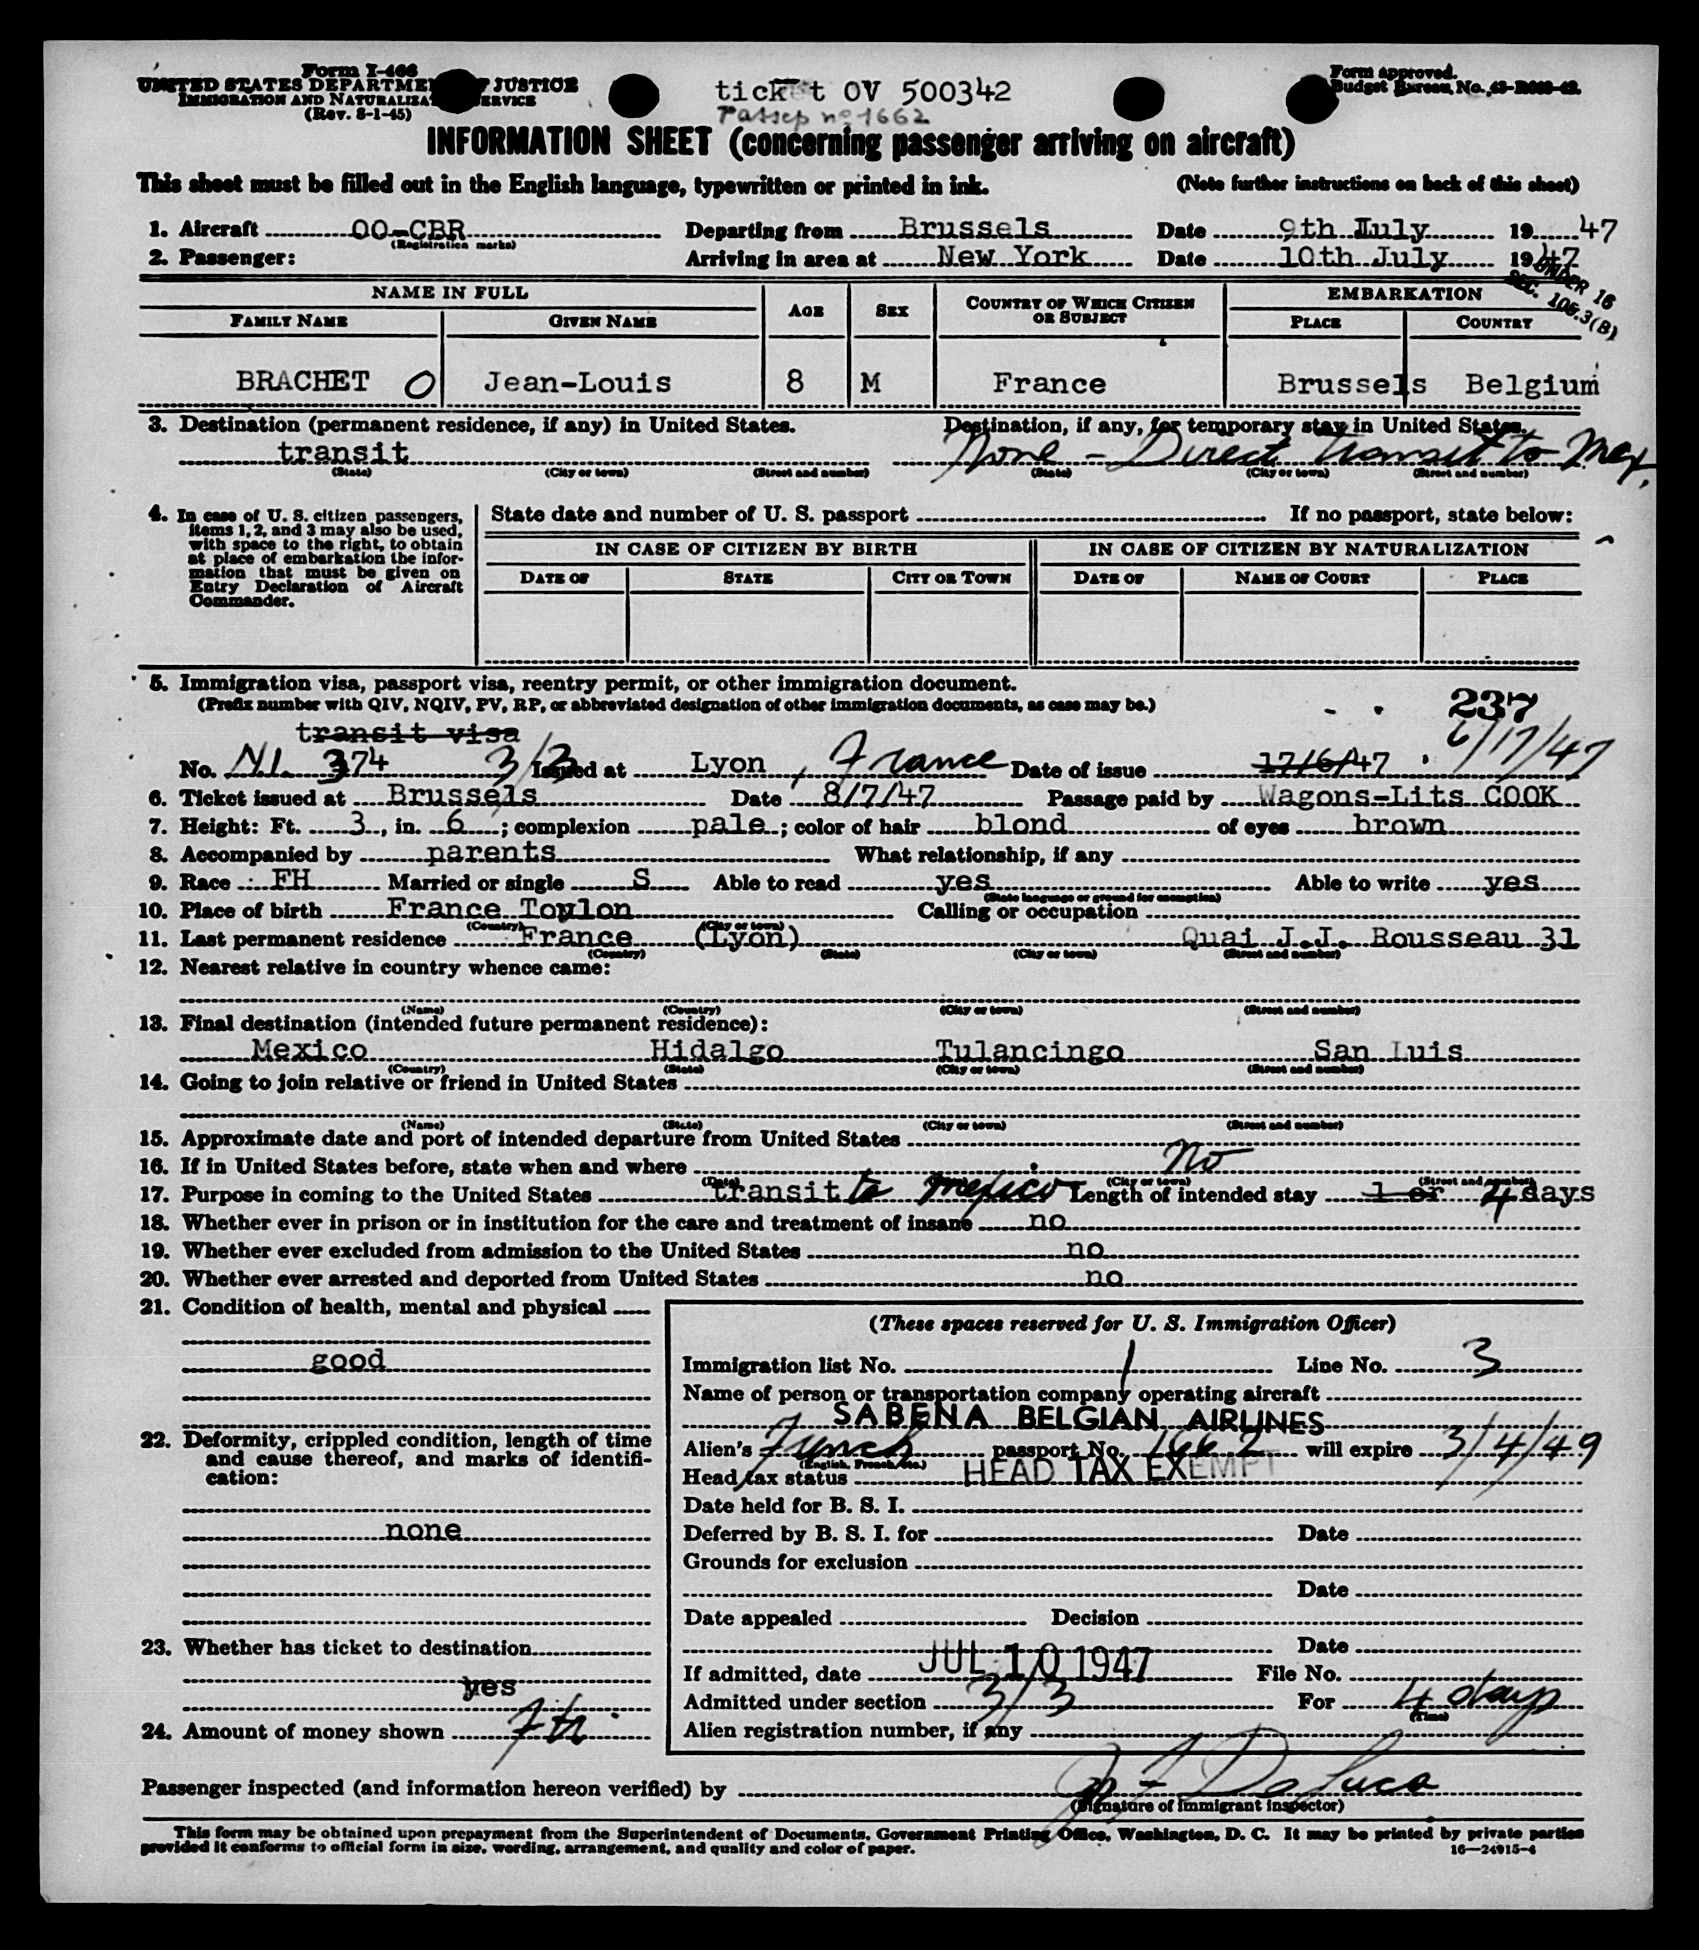 Form I-466
UNITED STATES DEPARTMENT OF JUSTICE
IMMIGRATION AND NATURALIZATION SERVICE
(Rev. 8-1-45)
ticket OV 500342
Passep nº 1662
Form approved.
Budget Bureau No. 43-R069-42.
INFORMATION SHEET (concerning passenger arriving on aircraft)
This sheet must be filled out in the English language, typewritten or printed in ink. (Note further instructions on back of this sheet)
1. Aircraft OO-CBR Departing from Brussels Date 9th July 1947
(Registration marks)
2. Passenger: Arriving in area at New York Date 10th July 1947
UNDER 16
SEC. 105.3(B)
NAME IN FULL AGE SEX COUNTRY OF WHICH CITIZEN OR SUBJECT EMBARKATION
FAMILY NAME GIVEN NAME PLACE COUNTRY
BRACHET O Jean-Louis 8 M France Brussels Belgium
3. Destination (permanent residence, if any) in United States. Destination, if any, for temporary stay in United States.
transit None - Direct transit to Mex.
(State) (City or town) (Street and number) (State) (City or town) (Street and number)
4. In case of U. S. citizen passengers, items 1, 2, and 3 may also be used, with space to the right, to obtain at place of embarkation the information that must be given on Entry Declaration of Aircraft Commander.
State date and number of U. S. passport If no passport, state below:
IN CASE OF CITIZEN BY BIRTH IN CASE OF CITIZEN BY NATURALIZATION
DATE OF STATE CITY OR TOWN DATE OF NAME OF COURT PLACE
5. Immigration visa, passport visa, reentry permit, or other immigration document.
(Prefix number with QIV, NQIV, PV, RP, or abbreviated designation of other immigration documents, as case may be.)
237
transit visa
No. N.I. 374 3/3 Issued at Lyon, France Date of issue 17/6/47 6/17/47
6. Ticket issued at Brussels Date 8/7/47 Passage paid by Wagons-Lits COOK
7. Height: Ft. 3, in. 6; complexion pale; color of hair blond of eyes brown
8. Accompanied by parents What relationship, if any
9. Race FH Married or single S Able to read yes Able to write yes
(State language or ground for exemption)
10. Place of birth France Toulon Calling or occupation
(Country) (City or town)
11. Last permanent residence France (Lyon) Quai J.J. Rousseau 31
(Country) (State) (City or town) (Street and number)
12. Nearest relative in country whence came:
(Name) (Country) (City or town) (Street and number)
13. Final destination (intended future permanent residence):
Mexico Hidalgo Tulancingo San Luis
(Country) (State) (City or town) (Street and number)
14. Going to join relative or friend in United States
(Name) (State) (City or town) (Street and number)
15. Approximate date and port of intended departure from United States
16. If in United States before, state when and where No
(Date) (City or town) (Street and number)
17. Purpose in coming to the United States transit to Mexico Length of intended stay 1 or 4 days
18. Whether ever in prison or in institution for the care and treatment of insane no
19. Whether ever excluded from admission to the United States no
20. Whether ever arrested and deported from United States no
21. Condition of health, mental and physical
good
22. Deformity, crippled condition, length of time and cause thereof, and marks of identification:
none
23. Whether has ticket to destination
yes
24. Amount of money shown
(These spaces reserved for U. S. Immigration Officer)
Immigration list No. 1 Line No. 3
Name of person or transportation company operating aircraft
SABENA BELGIAN AIRLINES
Alien's French passport No. 1662 will expire 3/4/49
(English, French, etc.)
Head tax status HEAD TAX EXEMPT
Date held for B. S. I.
Deferred by B. S. I. for Date
Grounds for exclusion
Date
Date appealed Decision
Date
If admitted, date JUL 10 1947 File No.
Admitted under section 3/3 For 4 days
(Time)
Alien registration number, if any
Passenger inspected (and information hereon verified) by
(Signature of immigrant inspector)
This form may be obtained upon prepayment from the Superintendent of Documents, Government Printing Office, Washington, D. C. It may be printed by private parties
provided it conforms to official form in size, wording, arrangement, and quality and color of paper. 16—24915-4